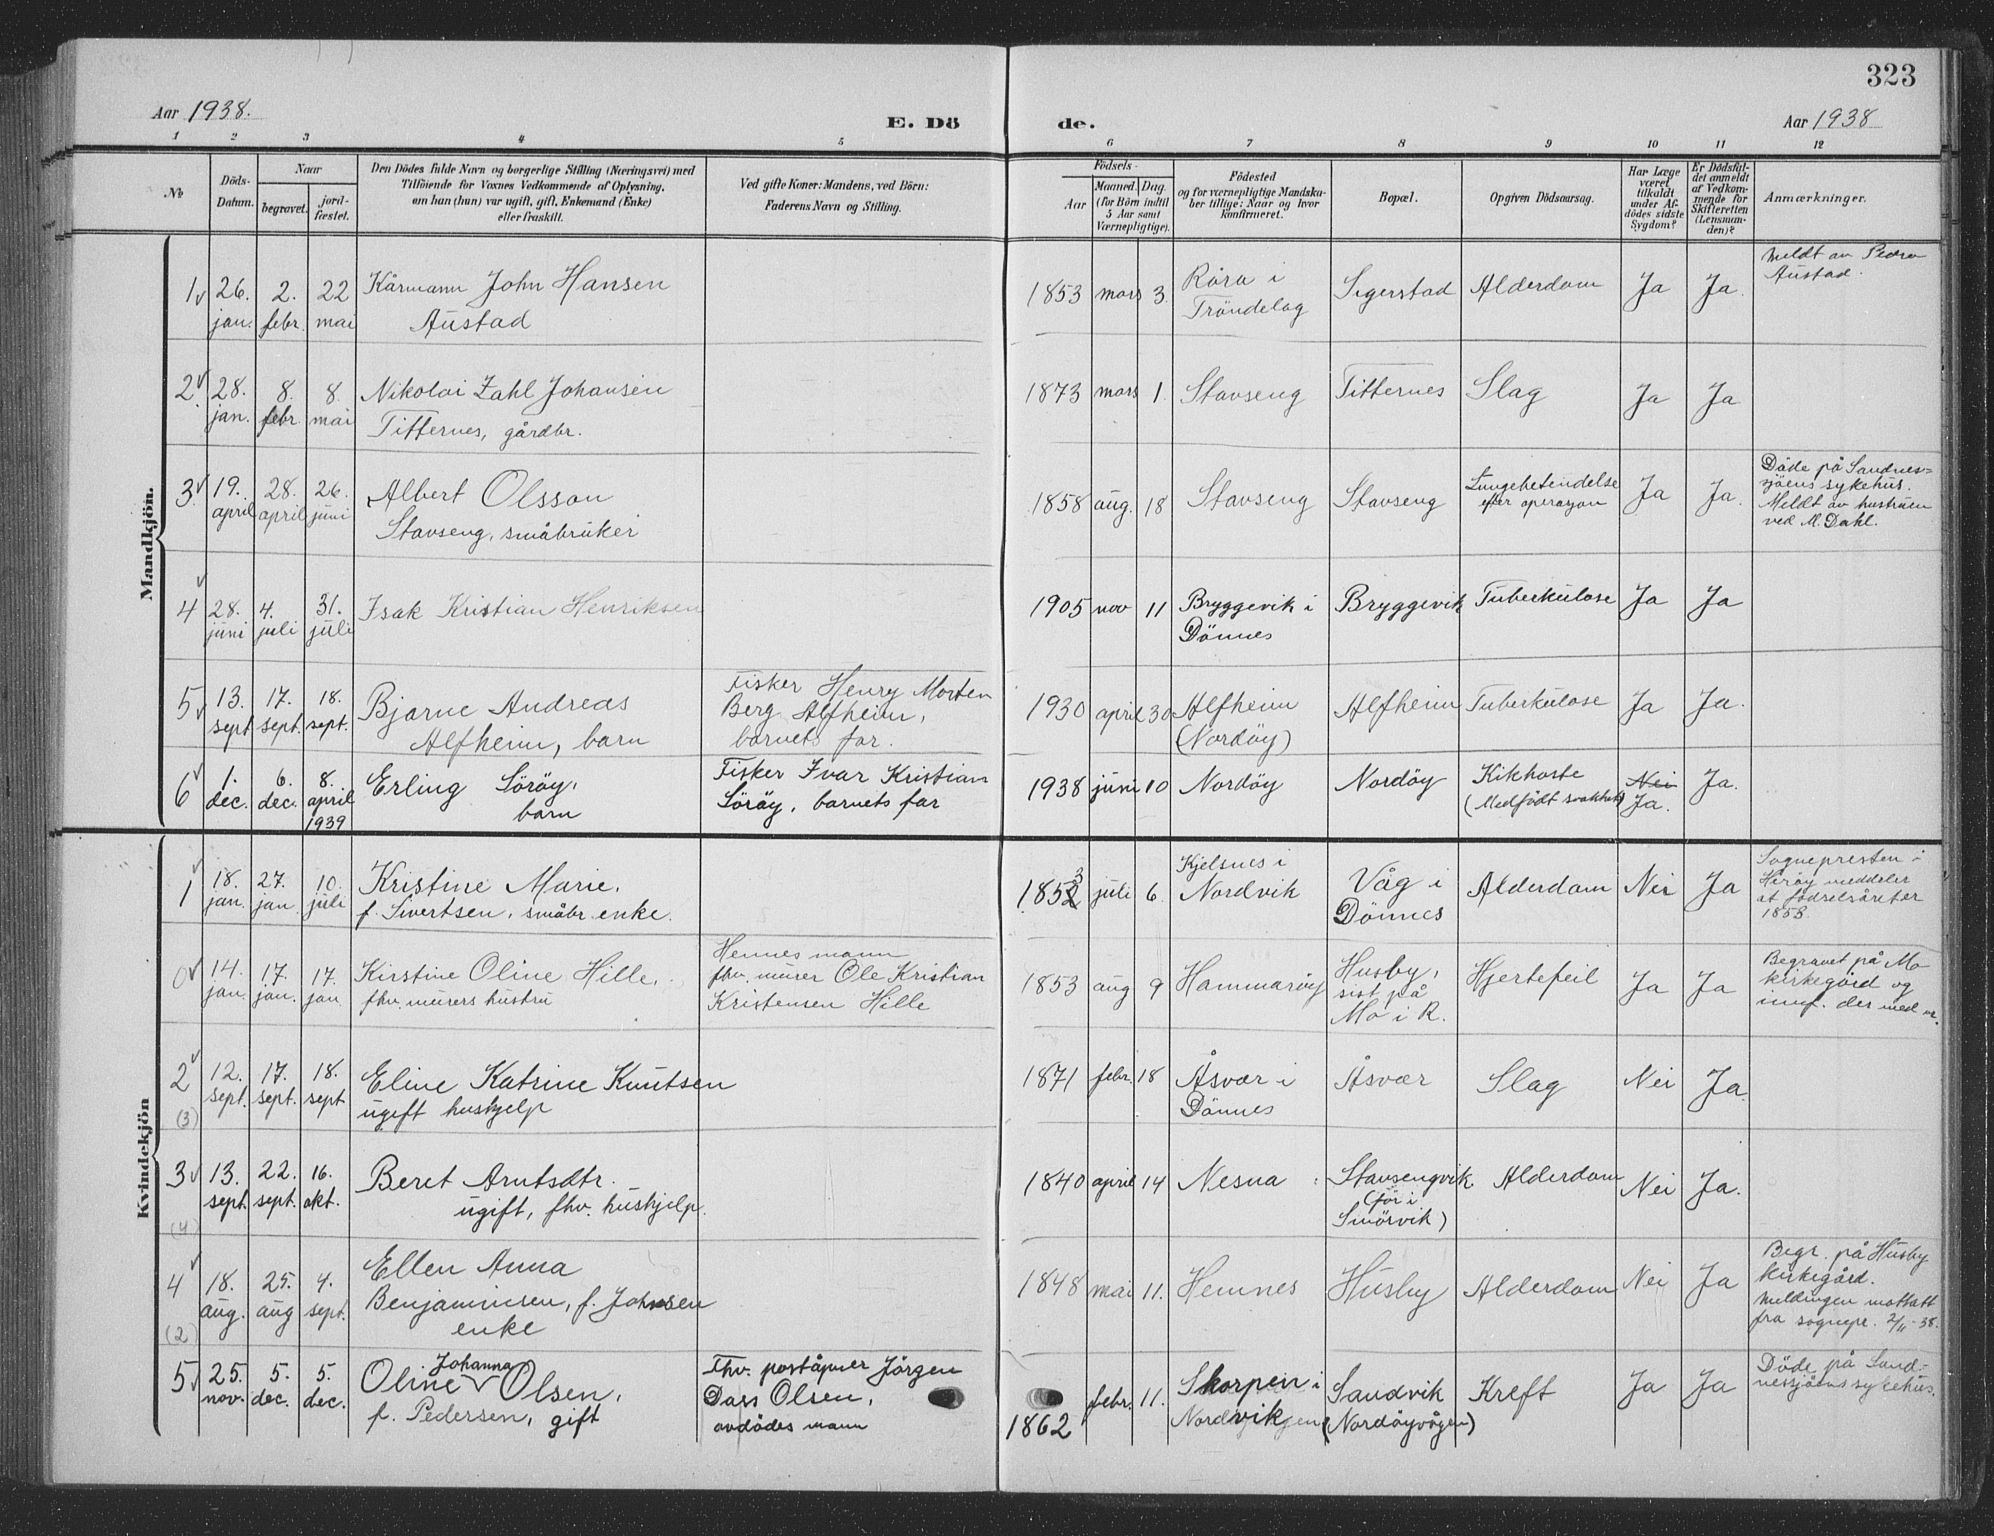 323
Aar 1938.
E. Dö
de.
Aar 1938
1 2 3 4 5 6 7 8 9 10 11 12
No
Döds-
Datum.
Naar
begravet.
jord-
fæstet.
Den Dödes fulde Navn og borgerlige Stilling (Næringsvei) med
Tilföiende for Voxnes Vedkommende af Oplysning,
om han (hun) var ugift, gift, Enkemand (Enke)
eller fraskilt.
Ved gifte Koner: Mandens, ved Börn:
Faderens Navn og Stilling.
Födsels-
Aar
Maaned.
Dag.
(for Börn indtil
5 Aar samt
Værnepligtige).
Födested
og for værnepligtige Mandska-
ber tillige: Naar og hvor
konfirmeret.
Bopæl.
Opgiven Dödsaarsag.
Har Læge
været
tilkaldt
under Af-
dödes sidste
Sygdom?
Er Dödsfal-
det anmeldt
af Vedkom-
mende for
Skifteretten
(Lensman-
den)?
Anmærkninger.
Mandkjön.
1 26. jan. 2. febr. 22 mai
Kårmann John Hansen
Austad
1853 mars 3.
Röra i
Tröndelag
Sigerstad
Alderdom
Ja
Ja.
Meldt av Pedra
Austad.
2 28. jan. 8. febr. 8. mai
Nikolai Zahl Johansen
Titternes, gårdbr.
1873 mars 1.
Stavseng
Titternes
Slag
Ja
Ja
3 19. april 28. april 26. juni
Albert Olsson
Stavseng, småbruker
1858 aug. 18
Stavseng
Stavseng
Lungebetendelse
efter operasjon
Ja
Ja.
Döde på Sandnes-
sjöens sykehus.
Meldt av hustruen
ved M. Dahl.
4 28. juni 4. juli 31. juli
Isak Kristian Henriksen
1905 nov 11
Bryggevik i
Dönnes
Bryggevik
Tuberkulose
Ja
Ja
5 13. sept 17. sept. 18. sept.
Bjarne Andreas
Alfheim, barn
Fisker Henry Morten
Berg Alfheim,
barnets far.
1930 april 30
Alfheim
(Nordöy)
Alfheim
Tuberkulose
Ja
Ja.
6 1. dec. 6. dec. 8. april 1939
Erling Söröy,
barn
Fisker Ivar Kristian
Söröy, barnets far
1938 juni 10
Nordöy
Nordöy
Kikhoste
(Medfödt svakhet)
Nei
Ja.
Ja.
Kvindekjön
1 18. jan. 27. jan 10. juli
Kristine Marie,
f. Sivertsen, småbr. enke.
1852 3 juli 6.
Kjelsnes i
Nordvik
Våg i
Dönnes
Alderdom
Nei
Ja
Sognepresten i
Heröy meddeler
at födselsåret er
1853
0 14. jan. 17. jan. 17. jan
Kirstine Oline Hille,
fhv. murers hustru
Hennes mann
fhv. murer Ole Kristian
Kristensen Hille
1853 aug 9
Hammaröy
Husby,
sist på
Mo i R.
Hjertefeil
Ja
Ja
Begravet på Mo
kirkegård og
innf. der med nr.
2 (3) 12. sept. 17. sept. 18. sept
Eline Katrine Knutsen
ugift hushjelp
1871 febr. 18
Åsvær i
Dönnes
Åsvær
Slag
Nei
Ja.
3 (4) 13. sept. 22. sept. 16. okt.
Beret Arntsdtr.
ugift, fhv. hushjelp.
1840 april 14
Nesna
Stavsengvik
(för i
Smörvik)
Alderdom
Nei
Ja.
4 (2) 18. aug. 25. aug 4. sept.
Ellen Anna
Benjaminsen, f. Johnsen
enke
1848 mai 11.
Hemnes
Husby
Alderdom
Nei
Ja
Begr. på Husby
kirkegård.
Meldingen mottatt
fra sognepr. 2/11-38.
5 25. nov. 5. dec. 5. dec.
Johanna
Oline Olsen,
f. Pedersen, gift
Fhv. poståpner Jörgen
Dass Olsen,
avdödes mann
1862 febr. 11.
Skorpen i
Nordvikgen
Sandvik
(Nordöyvågen)
Kreft
Ja
Ja
Döde på Sand-
nessjöens sykehus.